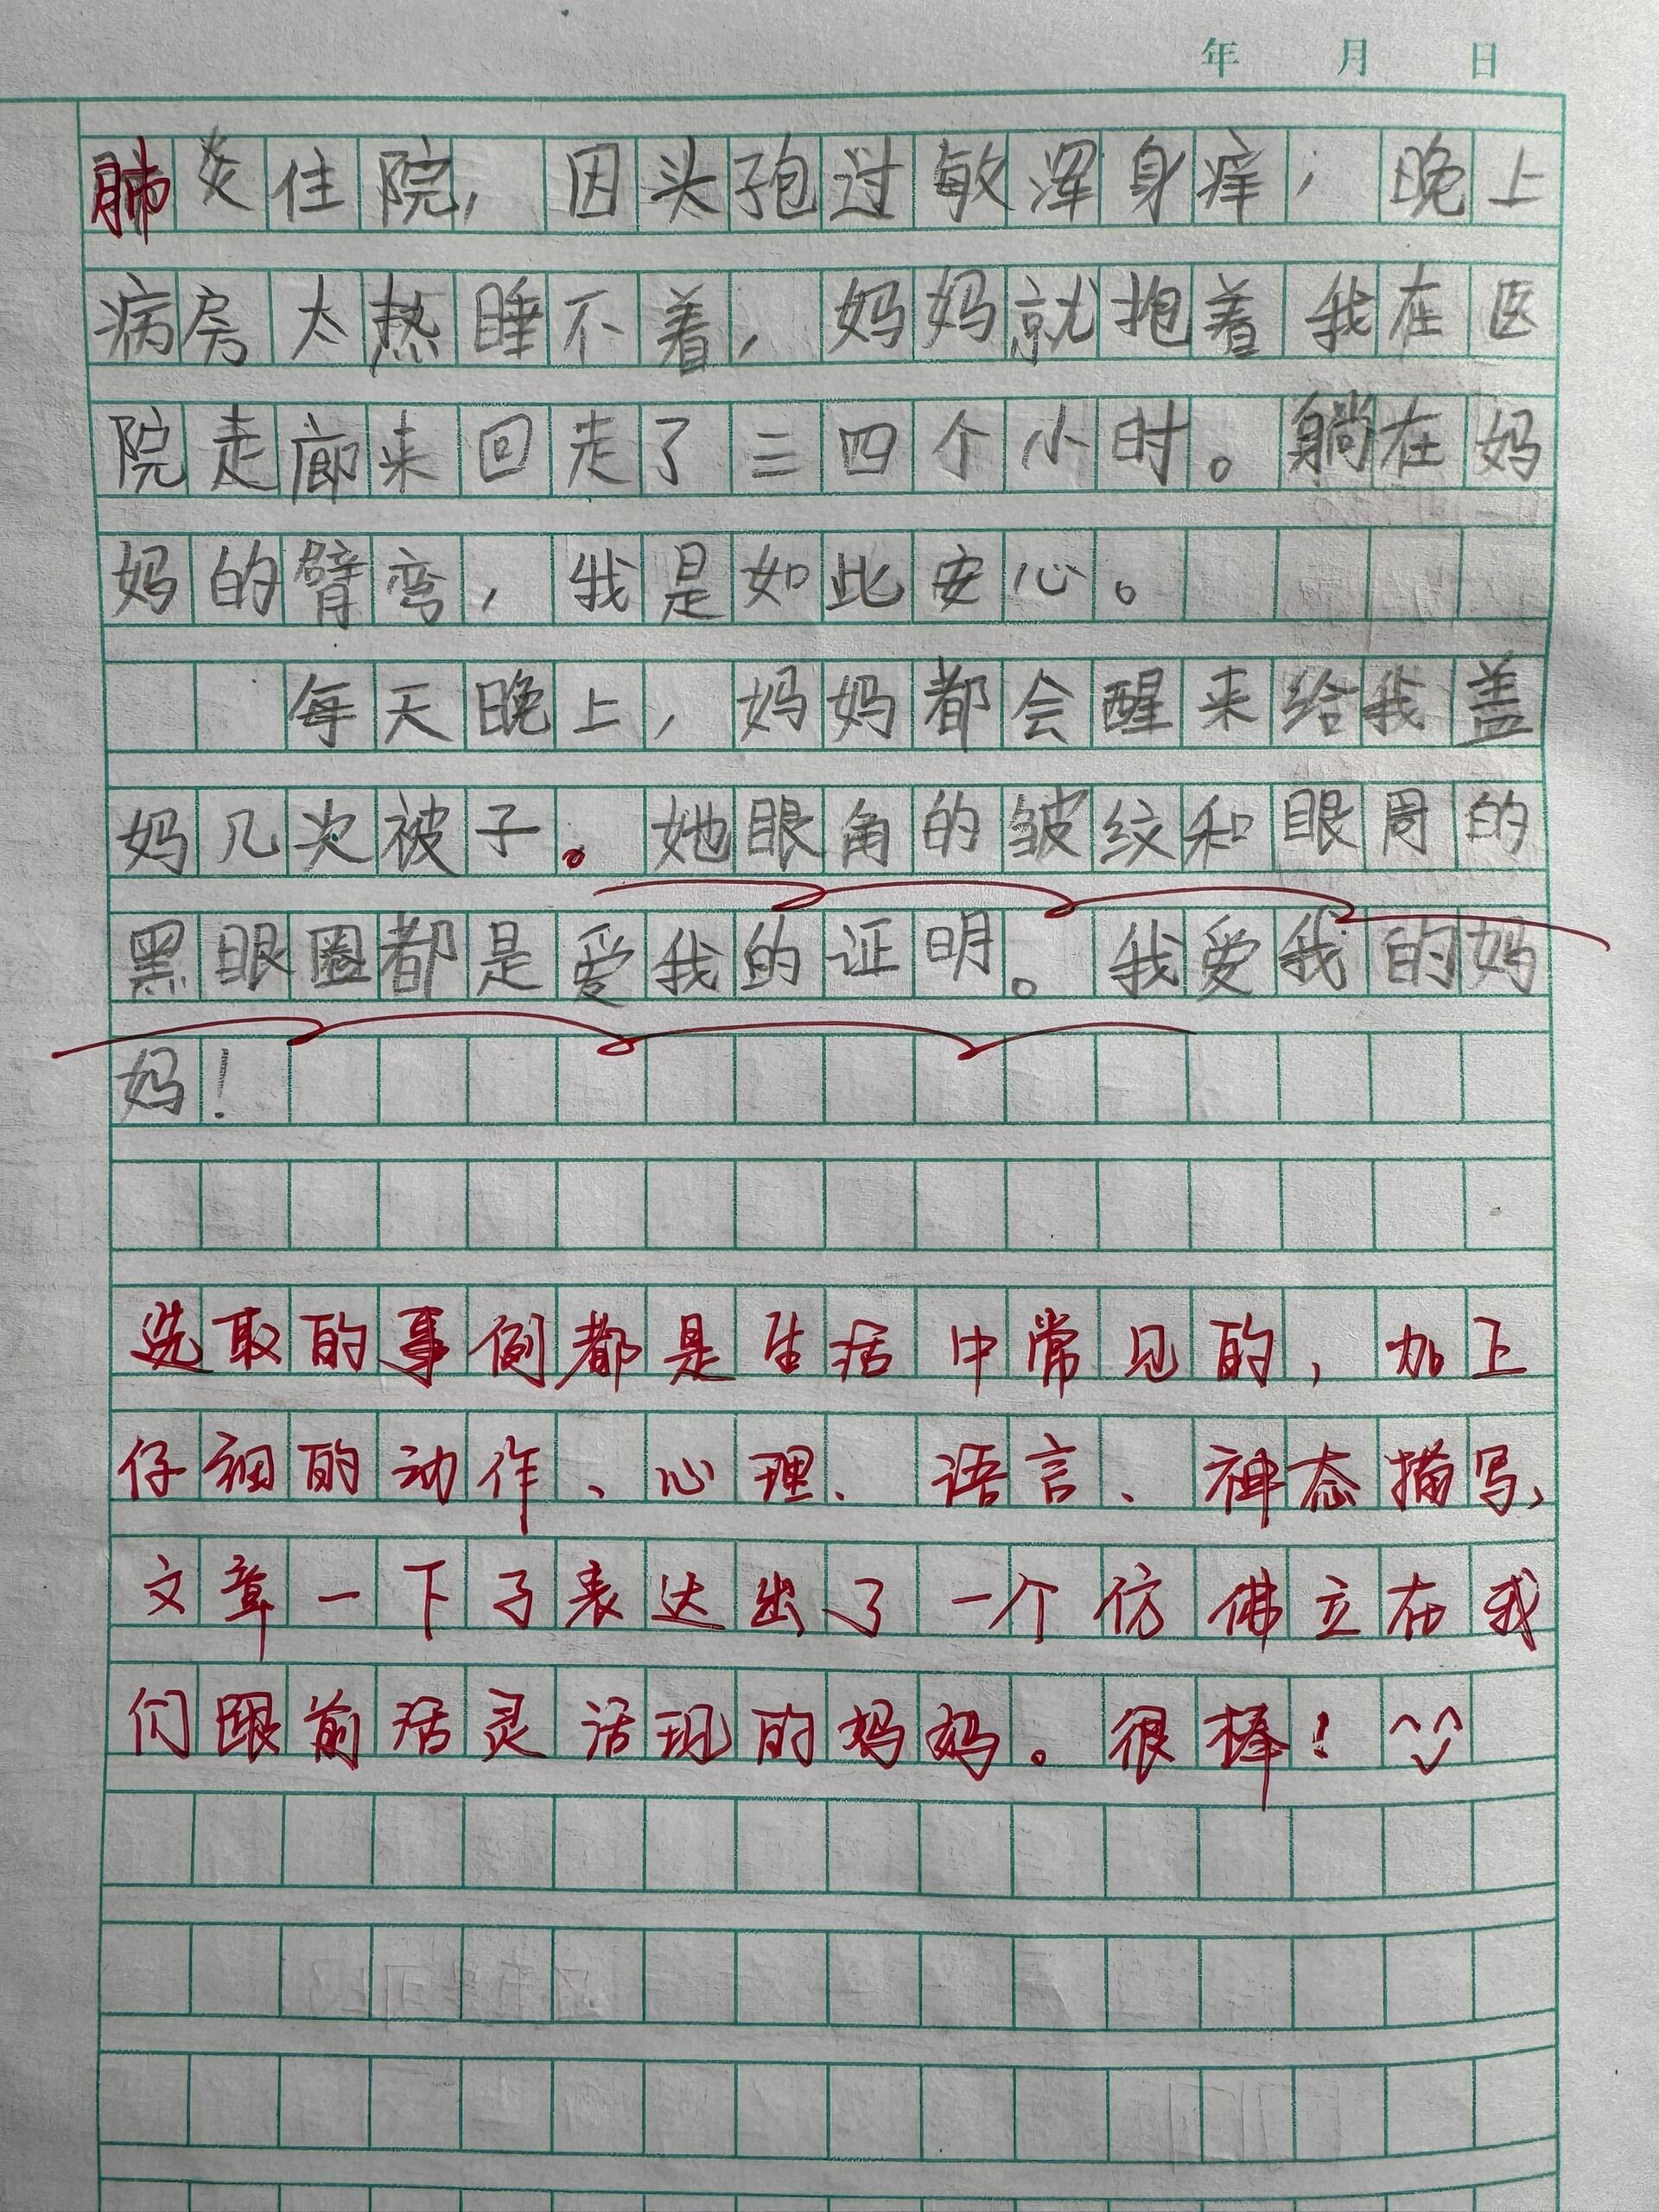 年 月 日
肺炎住院，因头孢过敏浑身痒，晚上
病房太热睡不着，妈妈就抱着我在医
院走廊来回走了三四个小时。躺在妈
妈的臂弯，我是如此安心。
每天晚上，妈妈都会醒来给我盖
妈几次被子。她眼角的皱纹和眼周的
黑眼圈都是爱我的证明。我爱我的妈
妈！
选取的事例都是生活中常见的，加上
仔细的动作、心理、语言、神态描写，
文章一下子表达出了一个仿佛立在我
们眼前活灵活现的妈妈。很棒！^^